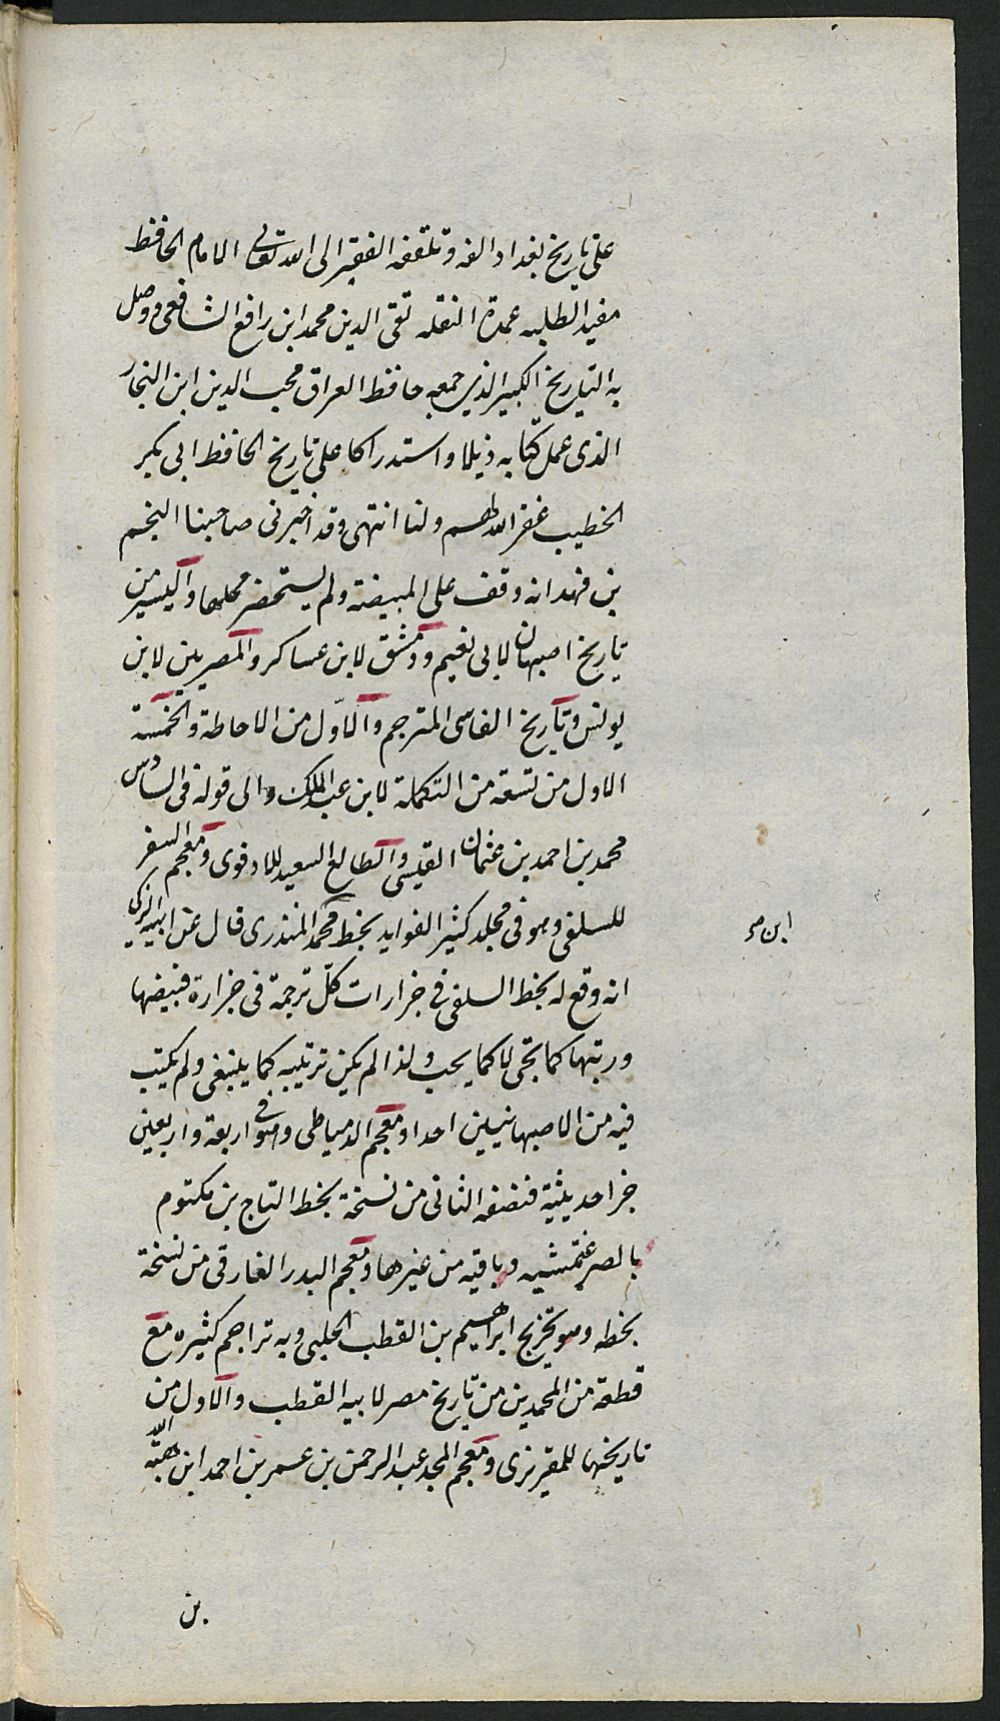 على تاريخ بغداد الفه وتلقفه الفقير الى الله تعالى الامام الحافظ
مفيد الطلبه عمدة النقله تقى الدين محمد ابن رافع الشافعى ووصل
به التاريخ الكبير الذى جمعه حافظ العراق محب الدين ابن النجار
الذى عمل كتابه ذيلا واستدراكا على تاريخ الحافظ ابى بكر
الخطيب غفر الله لهم ولنا انتهى وقد اخبرنى صاحبنا النجم
بن فهد انه وقف على المبيضة ولم يستحضر محلها واليسير من
تاريخ اصبهان لابى نعيم ودمشق لابن عساكر والمصريين لابن
يونس وتاريخ الفاسى المترجم والاول من الاحاطة والخمسة
الاول من تسعة من التكملة لابن عبد الملك والى قوله فى السادس
محمد بن احمد بن عثمان القيسى والطالع السعيد للادفوى ومعجم السفر
للسلفى وهو فى مجلد كثير الفوايد بخط محمد المنذرى قال عن ابيه الزكى
ابن صح
انه وقع له بخط السلفى فى جزازات كل ترجمة فى جزازة فبيضها
ورتبها كما تجى لا كما يحب ولذا لم يكن ترتيبه كما ينبغى ولم يكتب
فيه من الاصبهانيين احدا ومعجم الدمياطى وهو فى اربعة واربعين
جزا حديثية فنصفه الثانى من نسخة بخط التاج بن مكتوم
بالصرغتمشيه وباقيه من غيرها ومعجم البدر الفارقى من نسخة
بخطه وهو تخريج ابراهيم بن القطب الحلبى وبه تراجم كثيره مع
قطعة من المحمدين من تاريخ مصر لابيه القطب والاول من
تاريخها للمقريزى ومعجم المجد عبد الرحمن بن عمر بن احمد ابن هبة الله
بن